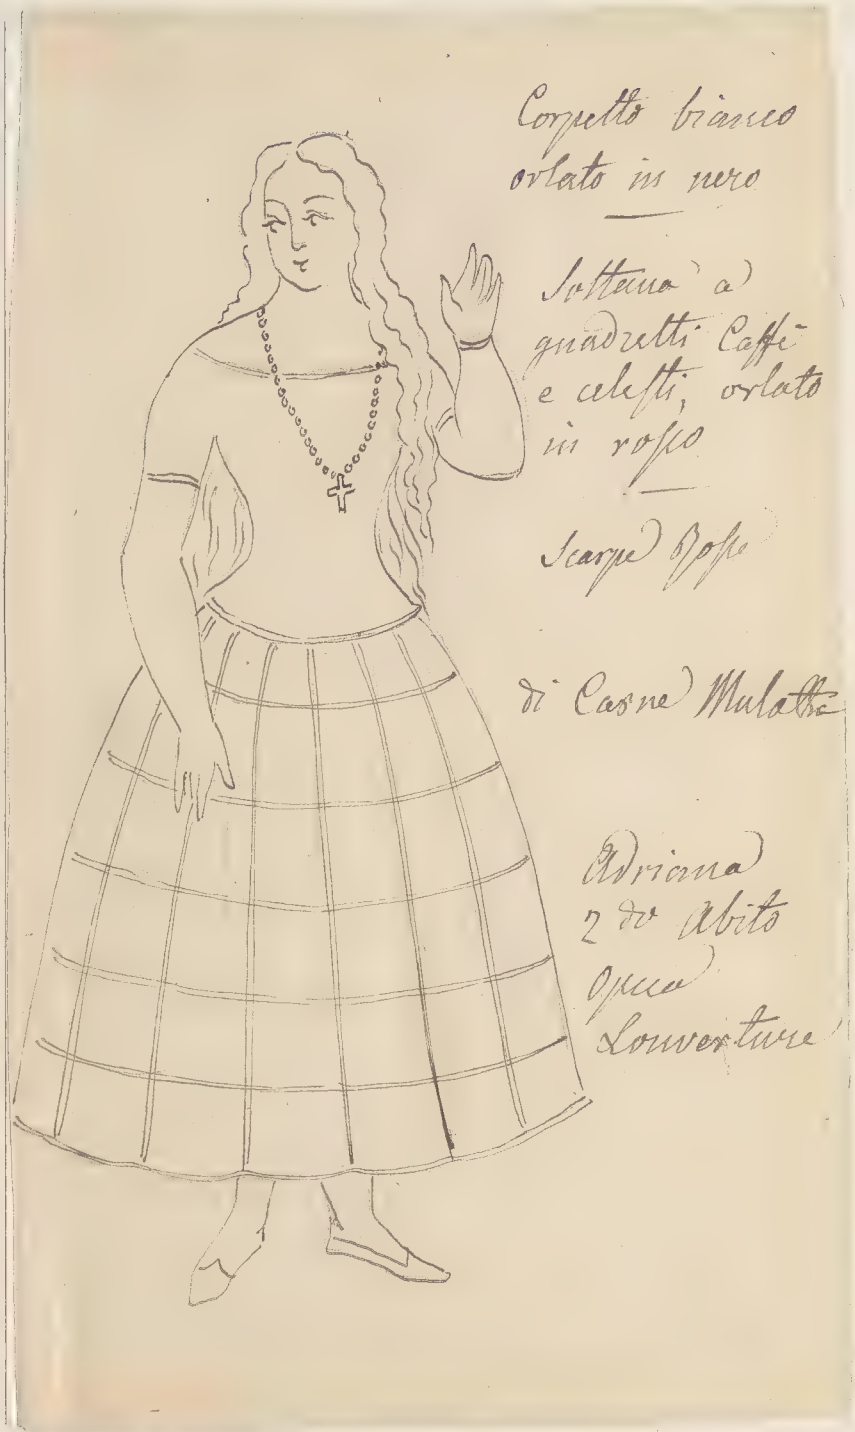 Corpetto bianco
orlato in nero
Sottana a
quadretti Caffè
e celesti, orlato
in rosso
Scarpe Rosse
di Carne Mulatta
Adriana
2do Abito
Opera
Louverture